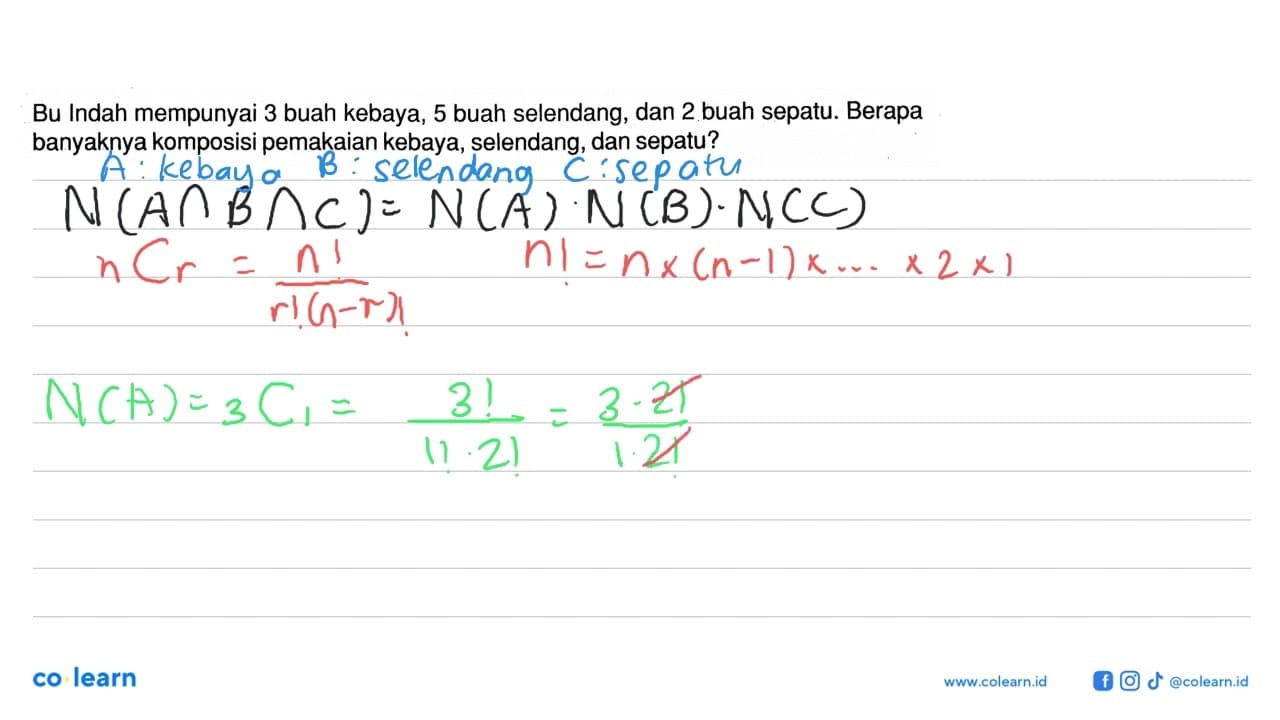 Bu Indah mempunyai 3 buah kebaya, 5 buah selendang, dan 2 buah sepatu. Berapa
banyaknya komposisi pemakaian kebaya, selendang, dan sepatu?
A : kebaya B : selendang C : sepatu
N(A∩B∩C) = N(A) · N(B) · N(C)
nCr = n! / r!(n-r)! n! = n × (n-1) × ... × 2 × 1
N(A) = 3C1 = 3! / 1! · 2! = 3 · 2! / 1 · 2!
co learn
www.colearn.id @colearn.id